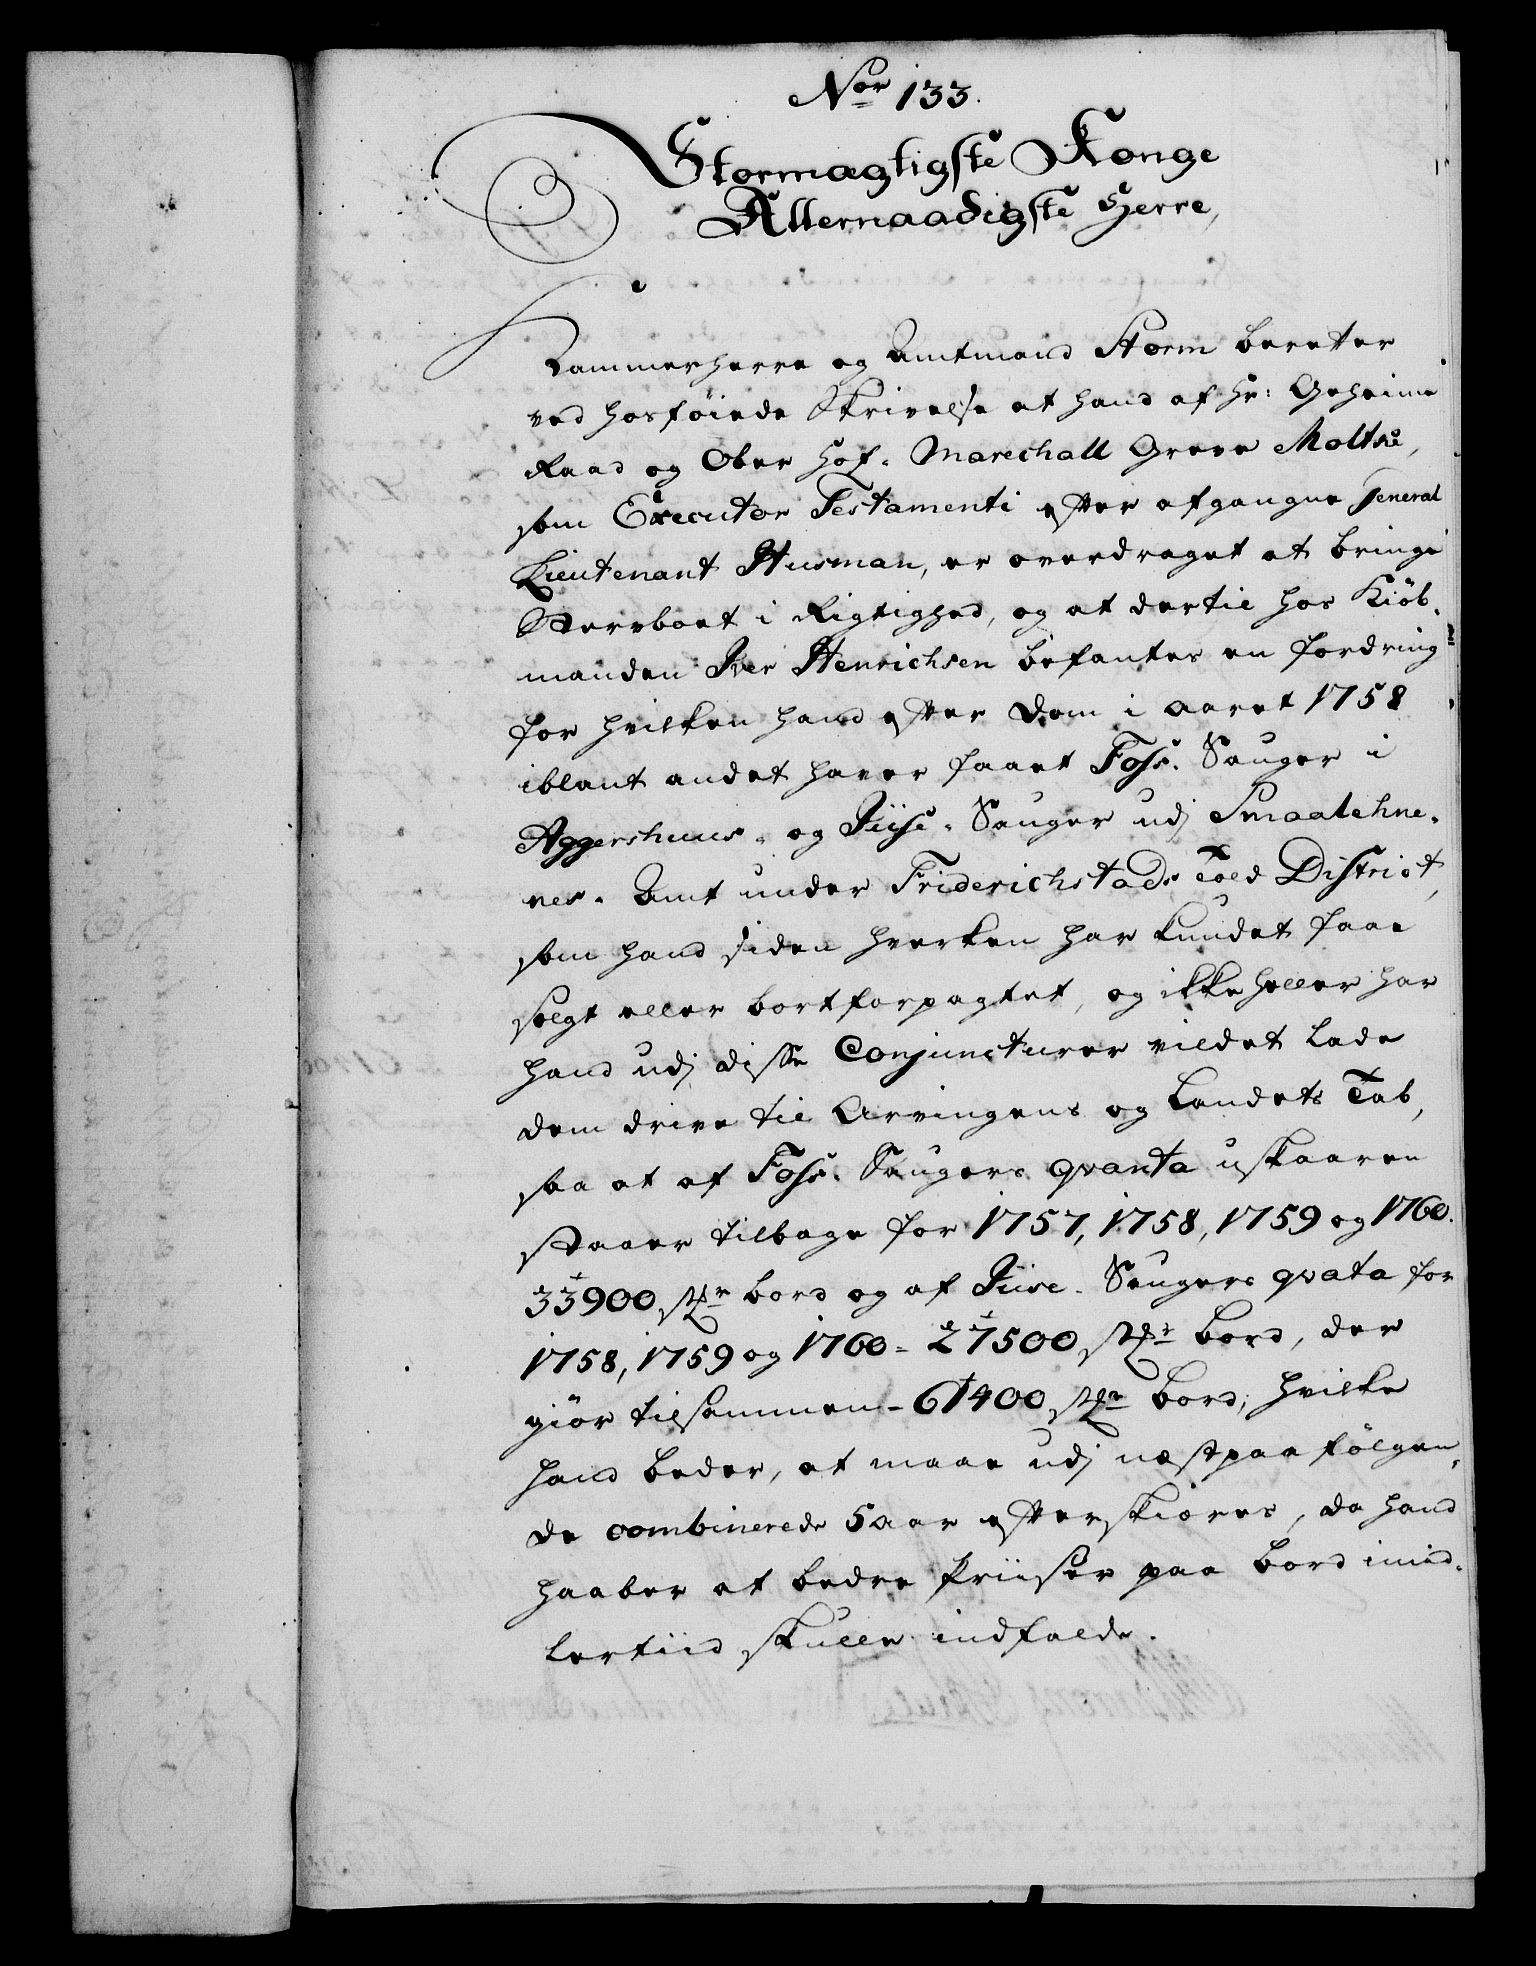 Nor 133.
Stormægtigste Konge
Allernaadigste Herre,
Kammerherre og Amtmand Storm beretter
ved hosføiede Skrivelse at hand af Hr: Geheime
Raad og Ober Hof-Marechall Greve Moltke,
som Executor Testamenti efter afgangne General
Lieutenant Husman, er overdraget at bringe
Stervboet i Rigtighed, og at dertil hos Kiöb-
manden Iver Henrichsen befantes en fordring
for hvilken hand efter Dom i aaret 1758
iblant andet haver faaet Foss-Sauger i
Aggershuus- og Jiise-Sauger udj Smaalehne-
nes-Amt under Friderichstads Told District,
som hand siden hverken har kundet faae
solgt eller bortforpagtet, og ikke heller har
hand udj disse Conjuncturer vildet lade
dem drive til Arvingens og Landets Tab,
saa at af Foss-Saugers qvanta uskaaren
staaer tilbage for 1757, 1758, 1759 og 1760.
33900 stkr bord og af Jiise-Saugers qvata for
1758, 1759 og 1760 - 27500 stkr bord, der
giör tilsammen - 61400 stkr bord; hvilke
hand beder, at maae udj næstpaafölgen-
de combinerede 5 aar efterskiæres, da hand
haaber at bedre Priiser paa bord imid-
lertiid skulle indfalde.